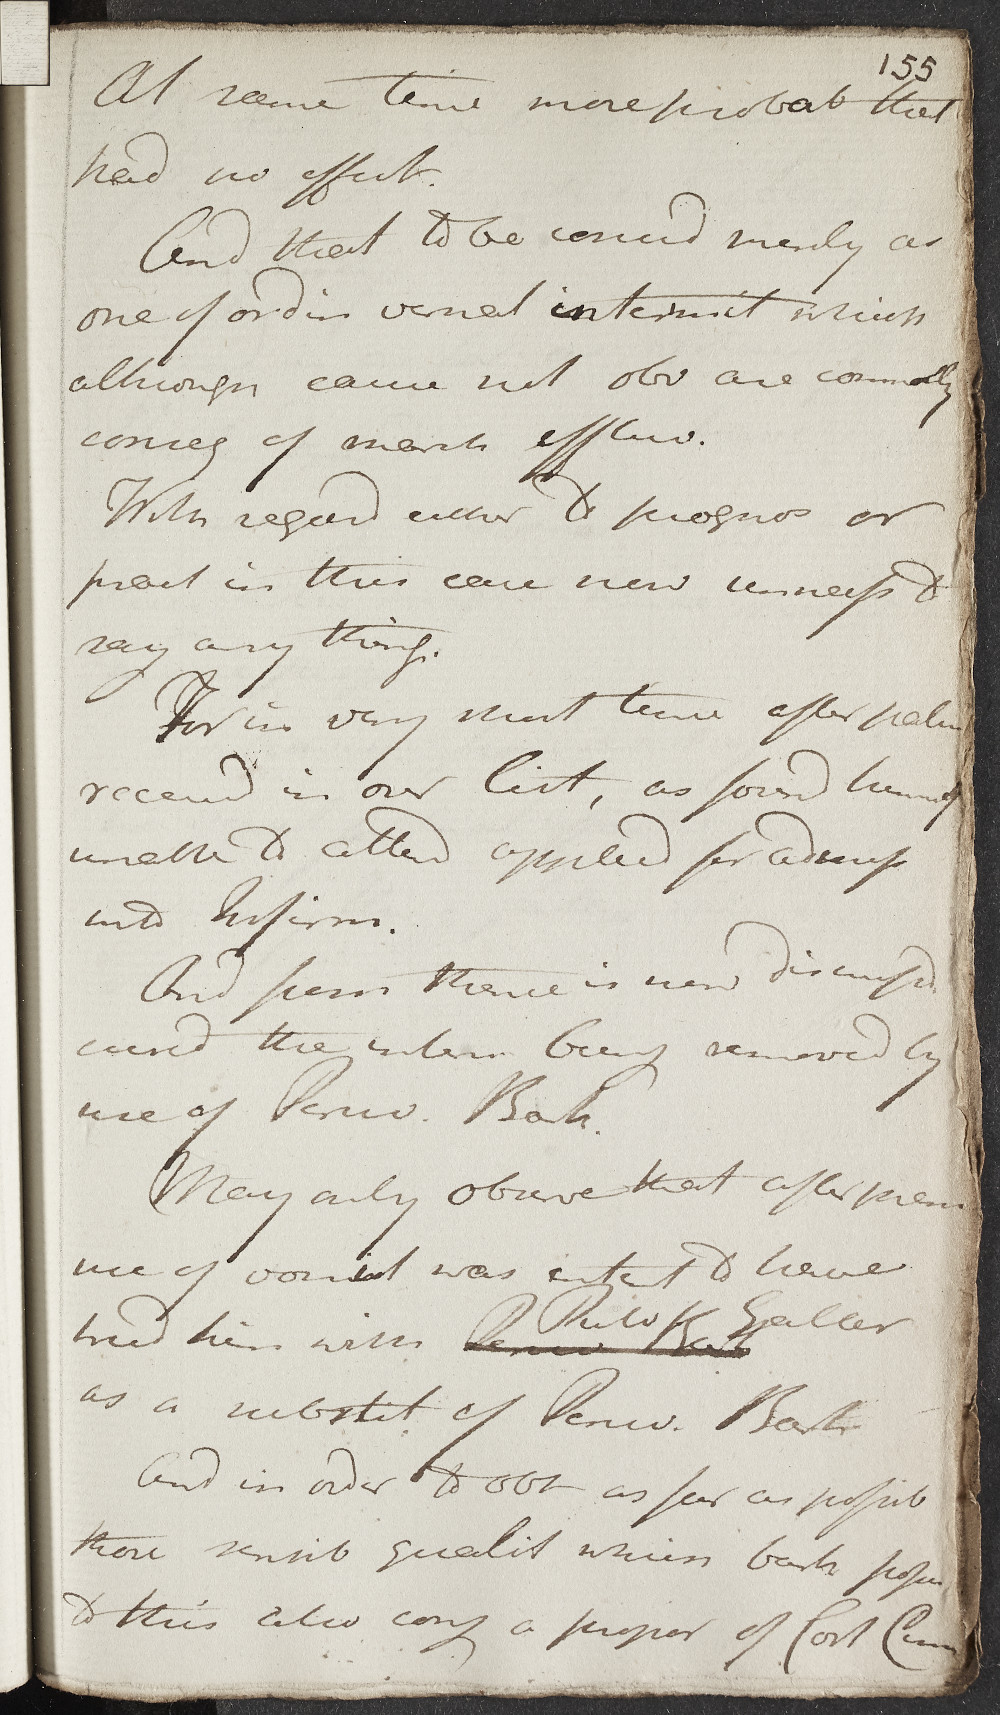 155
At same time more probab that
had no effect.
And that to be consid merely as
one of ordin vernal intermit which
although cause not obv are commonly
conseq of marsh effluv.
With regard either to prognos or
pract in this case now unnecess to
say any thing.
For in very short time after patien
received in our list, as found himself
unable to attend applied for admiss
into Infirm.
And from thence is now dismissd
cured the interm being removed by
use of Peruv. Bark.
May only observe that after prem
use of vomit was intent to have
tried him with Peruv Bark Galler
as a substit of Peruv. Bark
And in order to obt as far as possib
those sensib qualit which bark posses
to this also conj a propor of Cort Cinn